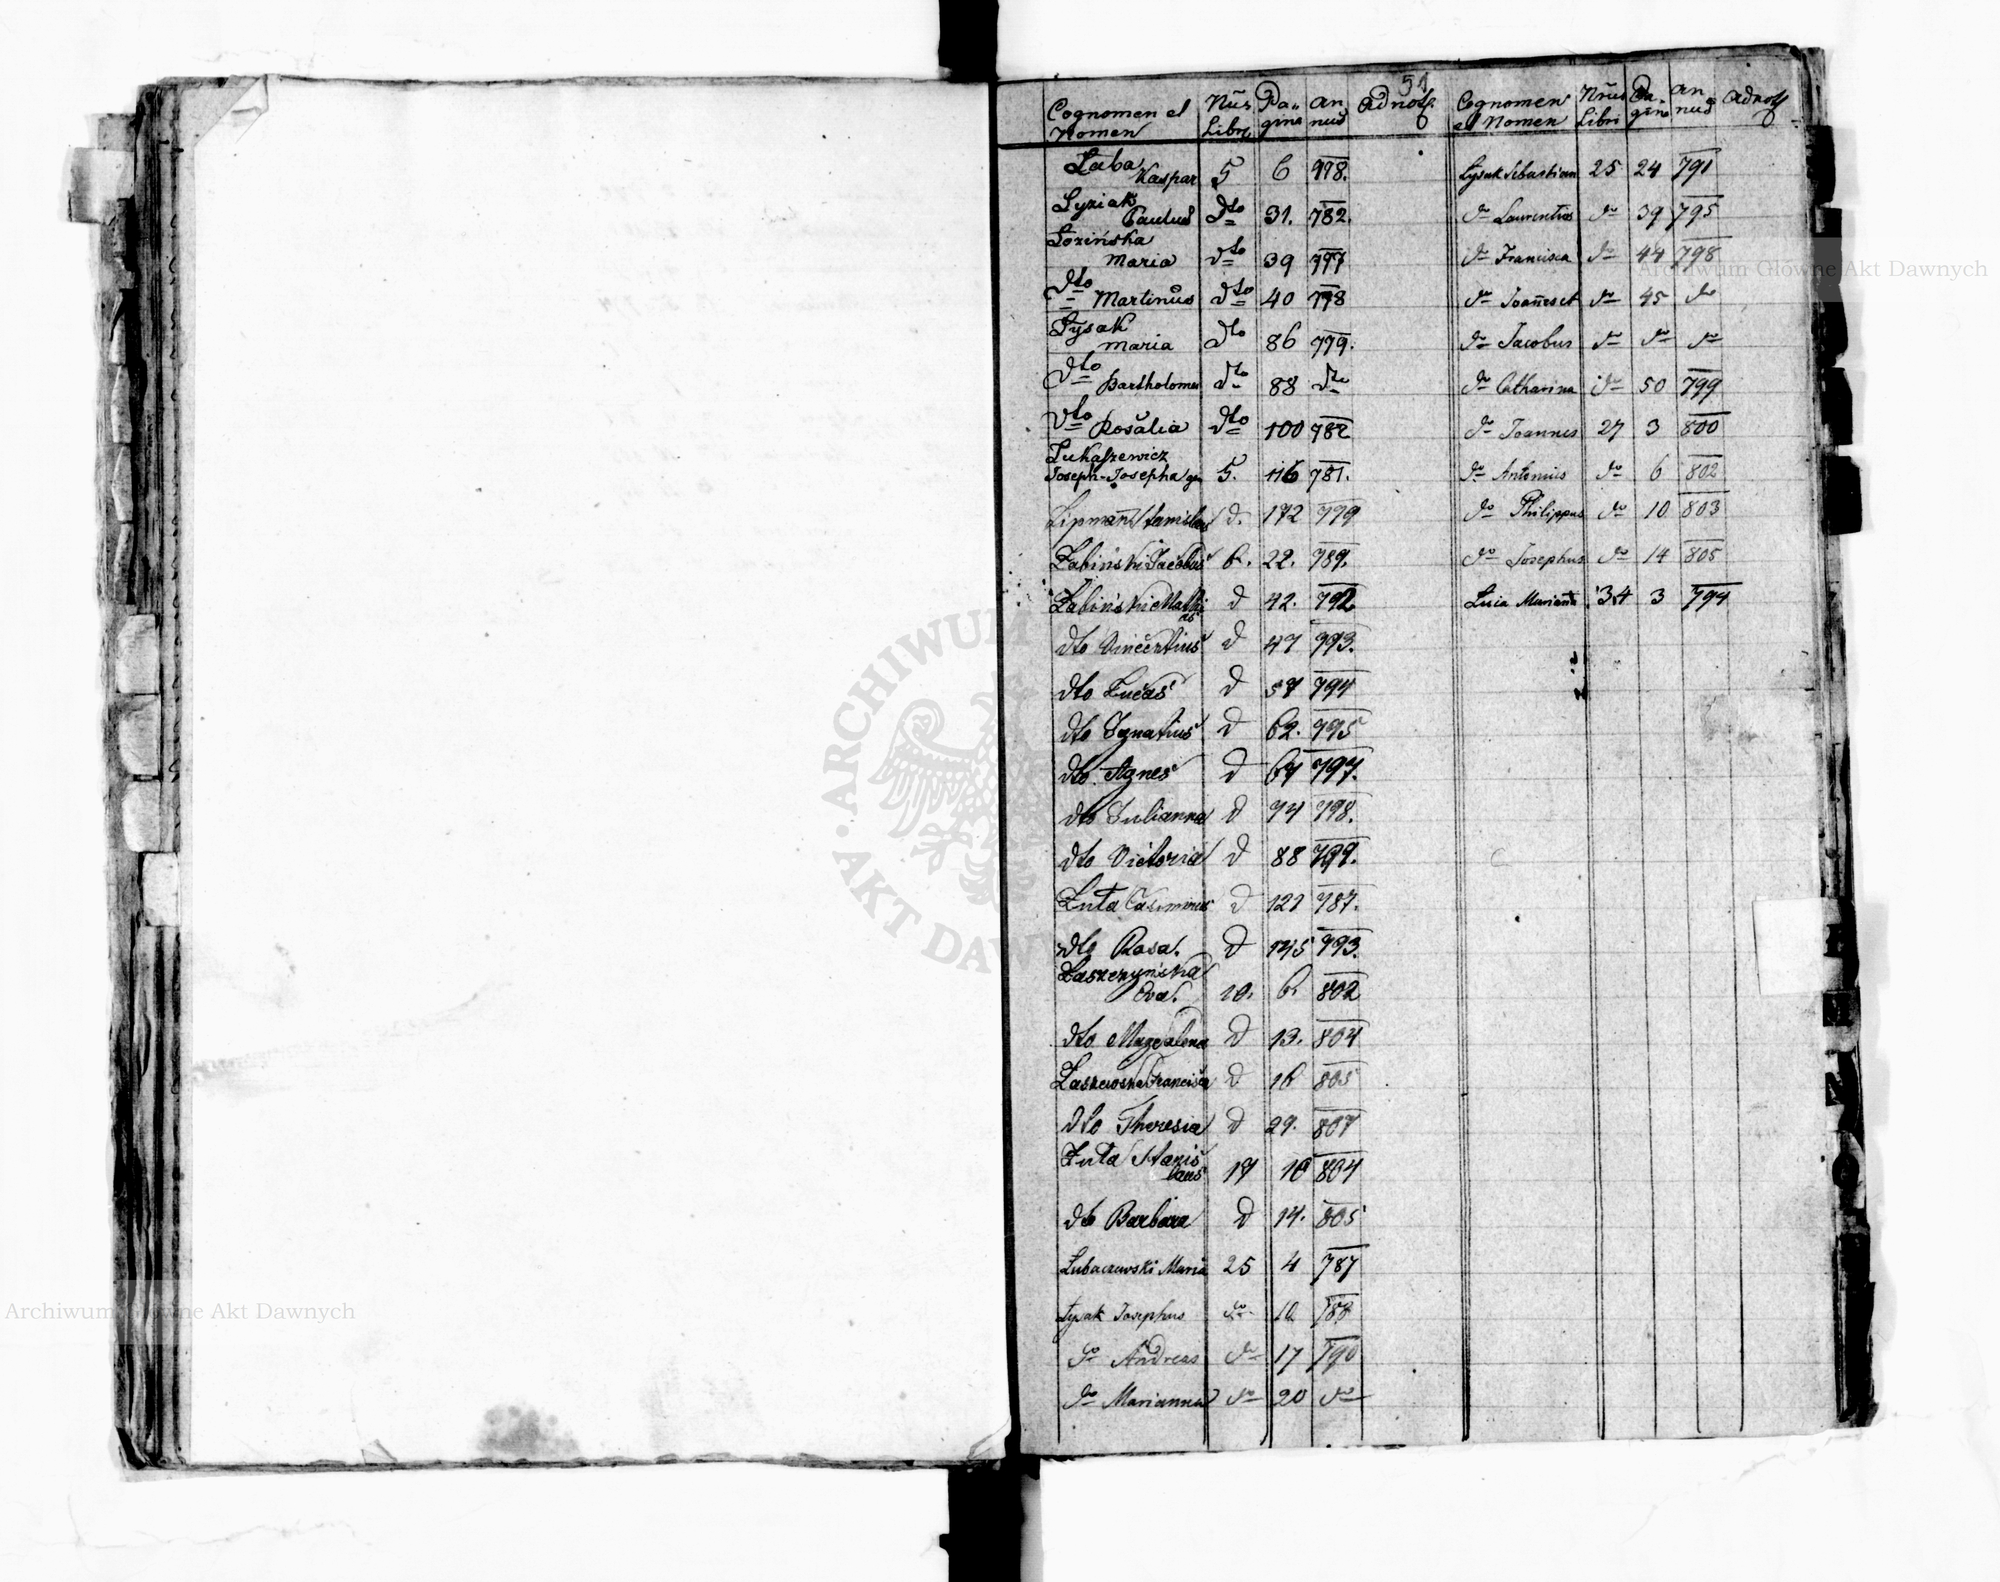 54
Cognomen et Nomen Nūs Libri Pagina Annus Adnot.
Łaba Kaspar 5 6 778.
Łyziak Paulus Dto 31. 782.
Łozińska Maria dto 39 777
dto Martinus dto 40 778
Łysak Maria Dto 86 779.
dto Bartholome dto 88 dto
dto Rosalia dto 100 782
Łukaszewicz
Joseph-Josepha 5. 116 781.
Lipman Stanislaus d. 172 799
Łabiński Jacobus 6. 22. 789.
Łabiński Mathias d 42. 792
dto Vincentius d 47 793.
dto Lucas d 57 794
dto Ignatius d 62. 795
dto Agnes d 67 797.
dto Julianna d 74 798.
dto Victoria d 88 799.
Łuta Casimirus d 121 787.
dto Rosa. d 145 793.
Łaszczyńska
Eva. 10. 6. 802
dto Magdalena d 13. 804
Francisca d 16 805
dto Theresia d 29. 807
Łuta Stanislaus 17 10 804
dto Barbara d 14. 805
Lubaczewski Maria 25 4 787
Łysak Josephus do 10 788
do Andreas do 17 790
do Marianna do 20 do
Cognomen et Nomen Nrus Libri Pagina Annus Adnot
Łysak Sebastian 25 24 791
do Laurentius do 39 795
do Francisca do 44 798
do Joannes et do 45 do
do Jacobus do do do
do Catharina do 50 799
do Joannes 27 3 800
do Antonius do 6 802
do Philippus do 10 803
do Josephus do 14 805
Marianna 34 3 794
Archiwum Główne Akt Dawnych
ARCHIWUM
AKT DAW
Archiwum Główne Akt Dawnych